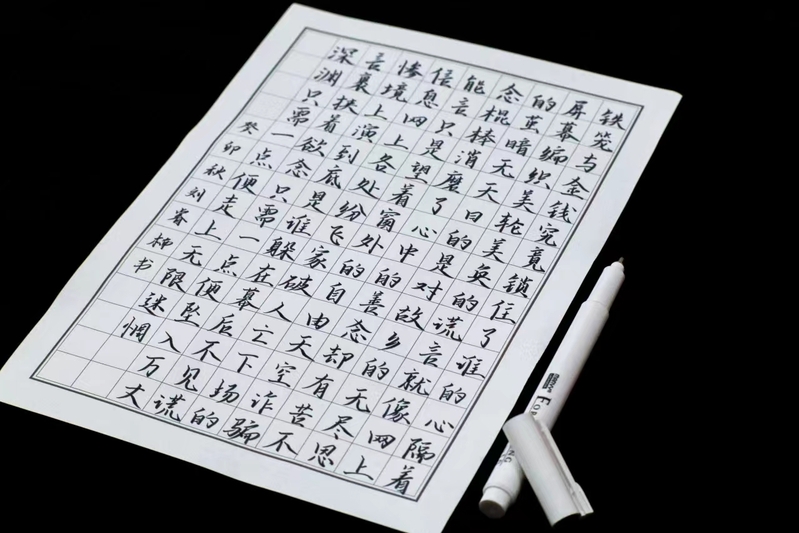 铁笼与金钱究竟锁住了谁的心隔着
屏幕编织美轮美奂的谎言就像网上
的茧暗无天日的是对故乡的无尽思
念棍棒消磨了心中的善念却有苦不
能言只是望着窗外的自由天空诈骗
信息网上各处纷飞家破人亡下场的
惨境上演到底是谁躲在幕后不见谎
言裹挟着欲念只需一点便坠入万丈
深渊只需一点便走上无限迷惘
癸卯秋刘书